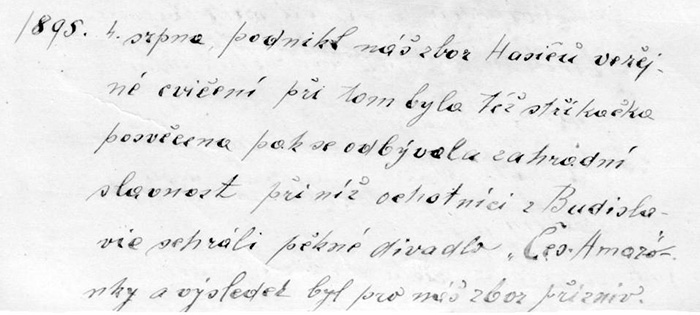 1895. 4. srpna, podnikl náš zbor Hasičů veřej-
né cvičení při tom byla též stříkačka
posvěcena pak se odbývala zahradní
slavnost při níž ochotníci z Budisla-
vic sehráli pěkné divadlo „Čes. Amazó-
nky a výsledek byl pro náš zbor přízniv.